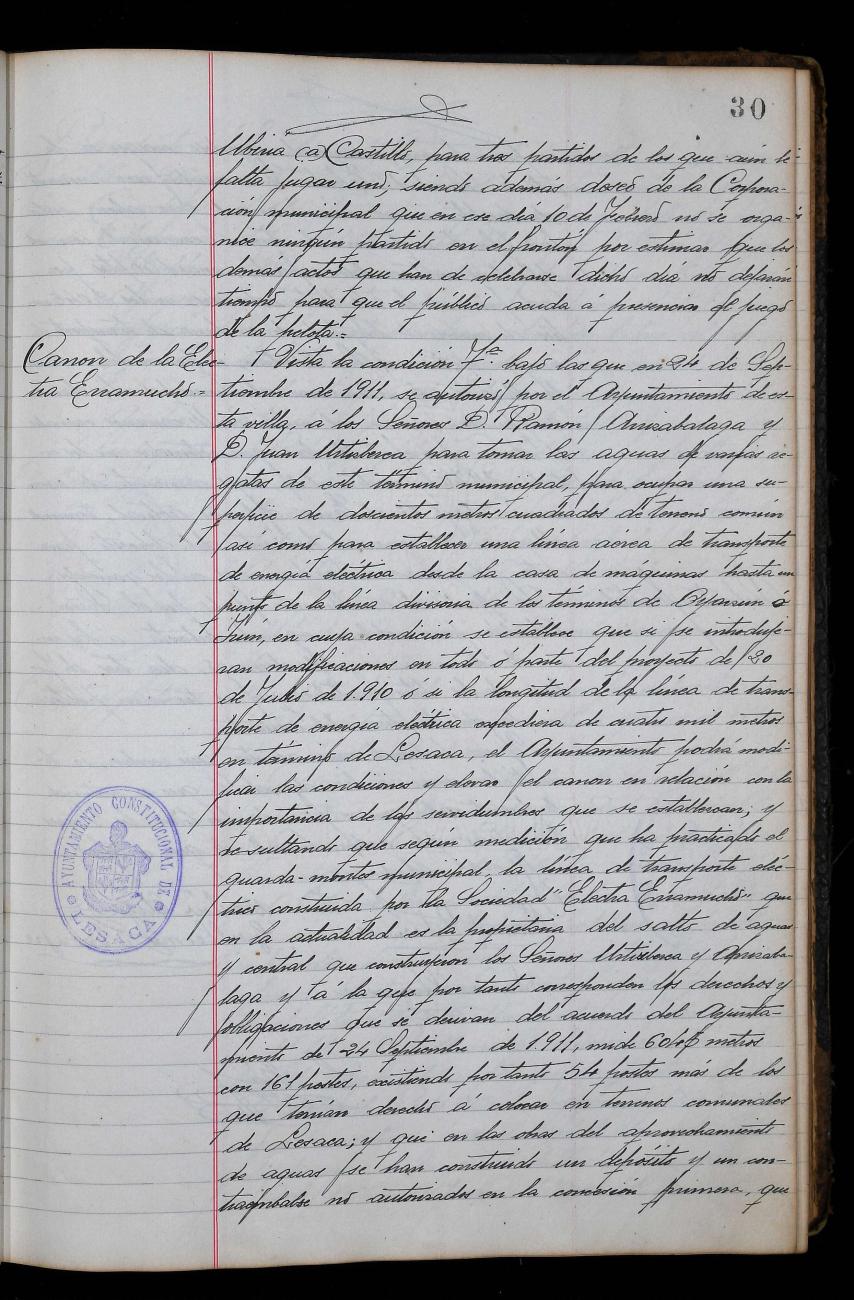 30
Ubiria (a) Castillo, para tres partidos de los que aún le
falta jugar uno; siendo además deseo de la Corpora-
ción municipal que en ese día 10 de Febrero no se orga-
nice ningún partido en el frontón por estimar que los
demás actos que han de celebrarse dicho dia no dejarán
tiempo para que el público acuda á presenciar el juego
de la pelota.=
Canon de la Elec-
tra Erramucho.=
Vista la condición 7ª bajo las que en 24 de Sep-
tiembre de 1911, se autorizó por el Ayuntamiento de es-
ta villa, á los Señores D. Ramón Arrizabalaga y
D. Juan Urtizberea para tomar las aguas de varias re-
gatas de este término municipal, para ocupar una su-
perficie de doscientos metros cuadrados de terreno común
así como para establecer una linea aérea de transporte
de energía eléctrica desde la casa de máquinas hasta un
punto de la línea divisoria de los términos de Oyarzun é
Irún, en cuya condición se establece que si se introduje-
ran modificaciones en todo ó parte del proyecto de 20
de Julio de 1.910 ó si la longitud de la línea de trans-
porte de energía eléctrica excediera de cuatro mil metros
en término de Lesaca, el Ayuntamiento podrá modi-
ficar las condiciones y elevar el canon en relación con la
importancia de las servidumbres que se establezcan; y
resultando que según medición que ha practicado el
guarda-montes municipal, la línea de transporte eléc-
trico construida por la Sociedad "Electra Erramucho" que
en la actualidad es la propietaria del salto de aguas
y central que construyeron los Señores Urtizberea y Arrizaba-
laga y á la que por tanto corresponden los derechos y
obligaciones que se derivan del acuerdo del Ayunta-
miento de 24 Septiembre de 1.911, mide metros
con 161 postes, existiendo por tanto 54 postes más de los
que tenían derecho á colocar en terrenos comunales
de Lesaca; y que en las obras del aprovechamiento
de aguas se han construido un depósito y un con-
traembalse no autorizados en la concesión primera, que
AYUNTAMIENTO CONSTITUCIONAL DE
LESACA